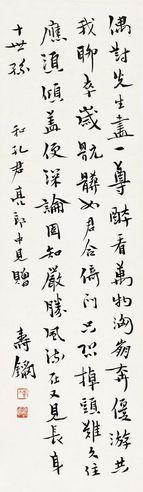 偶對先生盡一尊醉看萬物洶崩奔優游共
我聊卒歲骯髒如君合倚門只恐掉頭難久住
應須傾蓋便深論固知嚴勝風流在又見長身
十世孫
和孔君亮郎中見贈
壽鏞